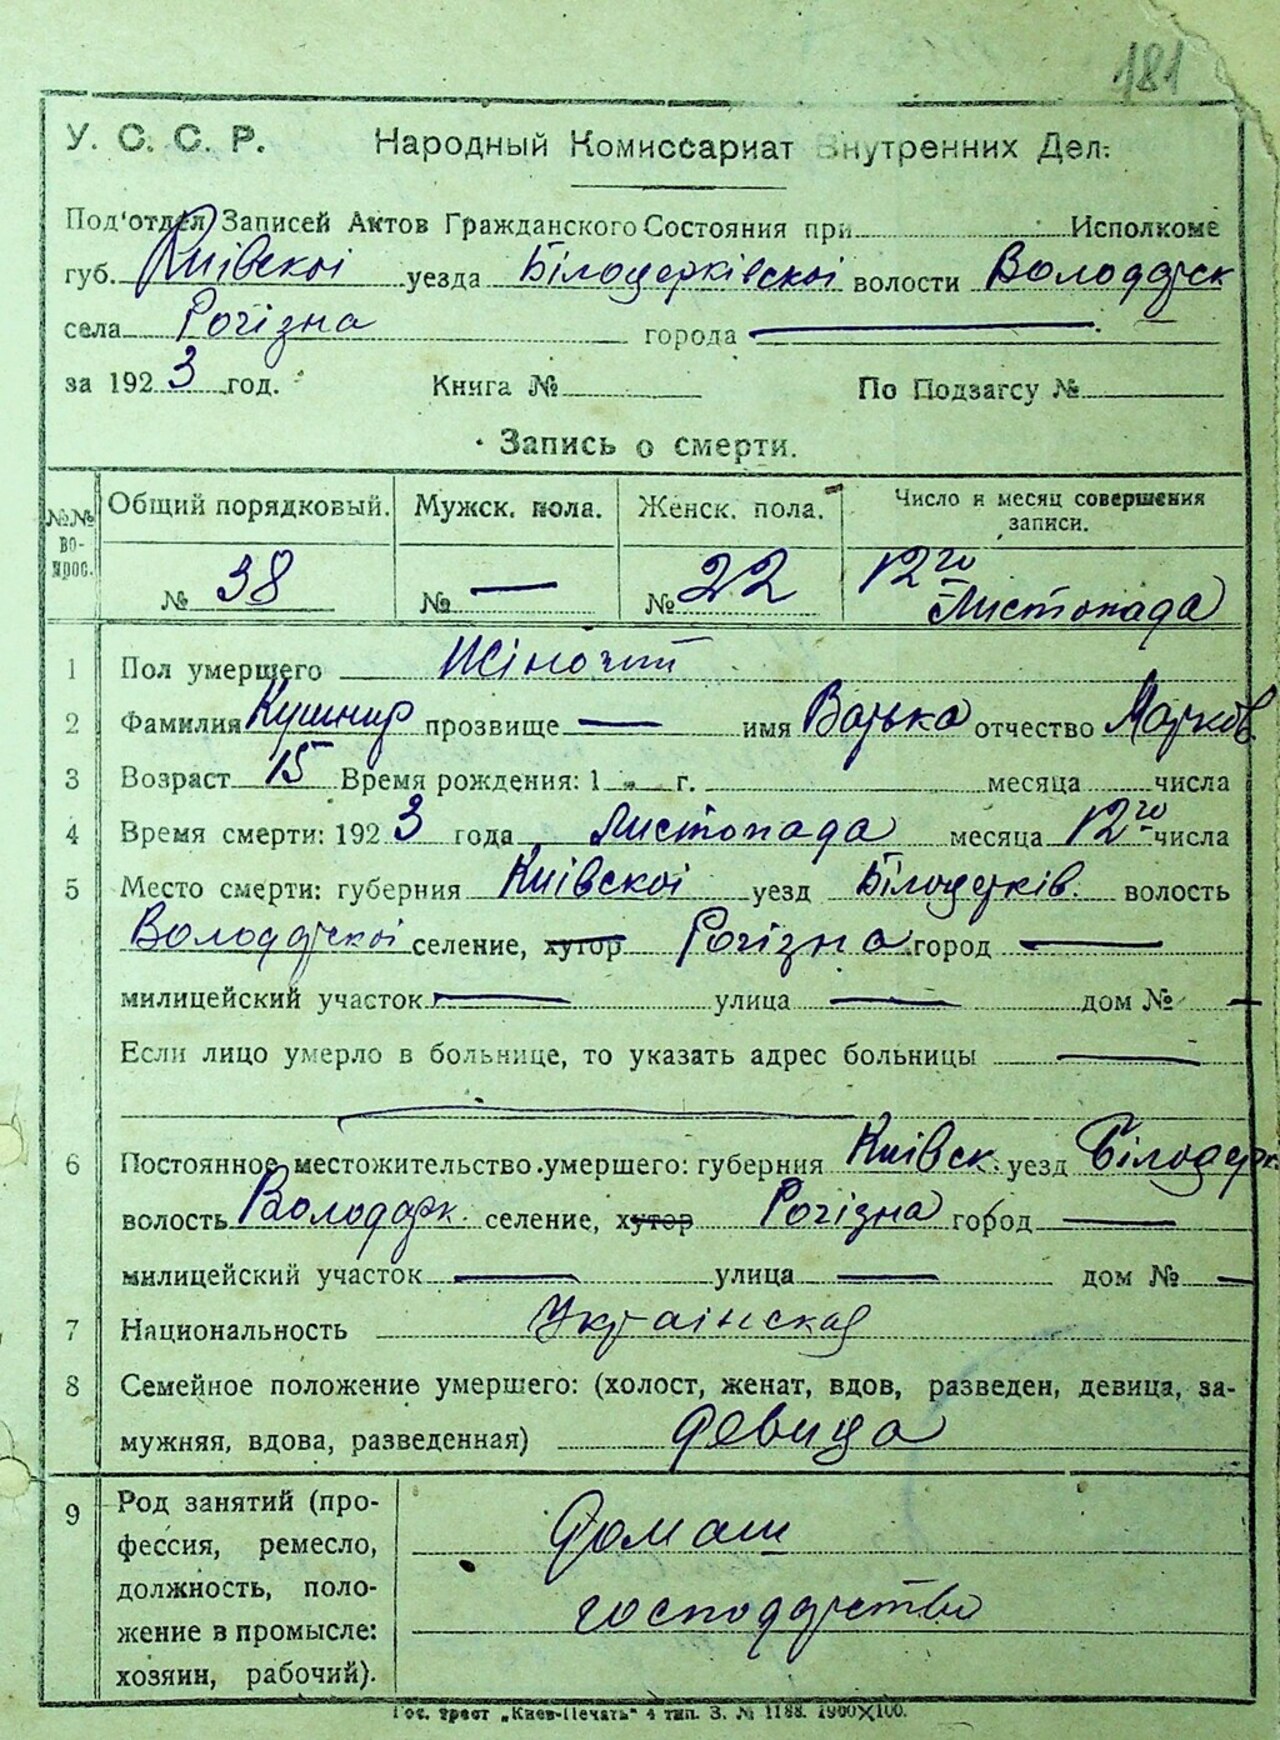 181
У. С. С. Р. Народный Комиссариат Внутренних Дел.
Под'отдел Записей Актов Гражданского Состояния при Исполкоме
губ. Київскої уезда Білоцерківскої волости Володарск
села Рогізна города —
за 1923 год. Книга № По Подзагсу №
Запись о смерти.
№№ во-прос. Общий порядковый. Мужск. пола. Женск. пола. Число и месяц совершения записи.
№ 38 № — № 22 12го Листопада
1 Пол умершего Жіночий
2 Фамилия Кушнир прозвище — имя Варька отчество Марков.
3 Возраст 15 Время рождения: 1 г. месяца числа
4 Время смерти: 1923 года Листопада месяца 12го числа
5 Место смерти: губерния Київскої уезд Білоцерків. волость
Володарскої селение, хутор Рогізна город —
милицейский участок — улица — дом № —
Если лицо умерло в больнице, то указать адрес больницы —
6 Постоянное местожительство умершего: губерния Київск. уезд Білоцерк.
волость Володарк. селение, хутор Рогізна город —
милицейский участок — улица — дом № —
7 Национальность Украінская
8 Семейное положение умершего: (холост, женат, вдов, разведен, девица, за-
мужняя, вдова, разведенная) девица
9 Род занятий (про-
фессия, ремесло,
должность, поло-
жение в промысле:
хозяин, рабочий).
домаш
господарство
Гос. трест „Киев-Печать" 4 тип. З. № 1188. 1900×100.